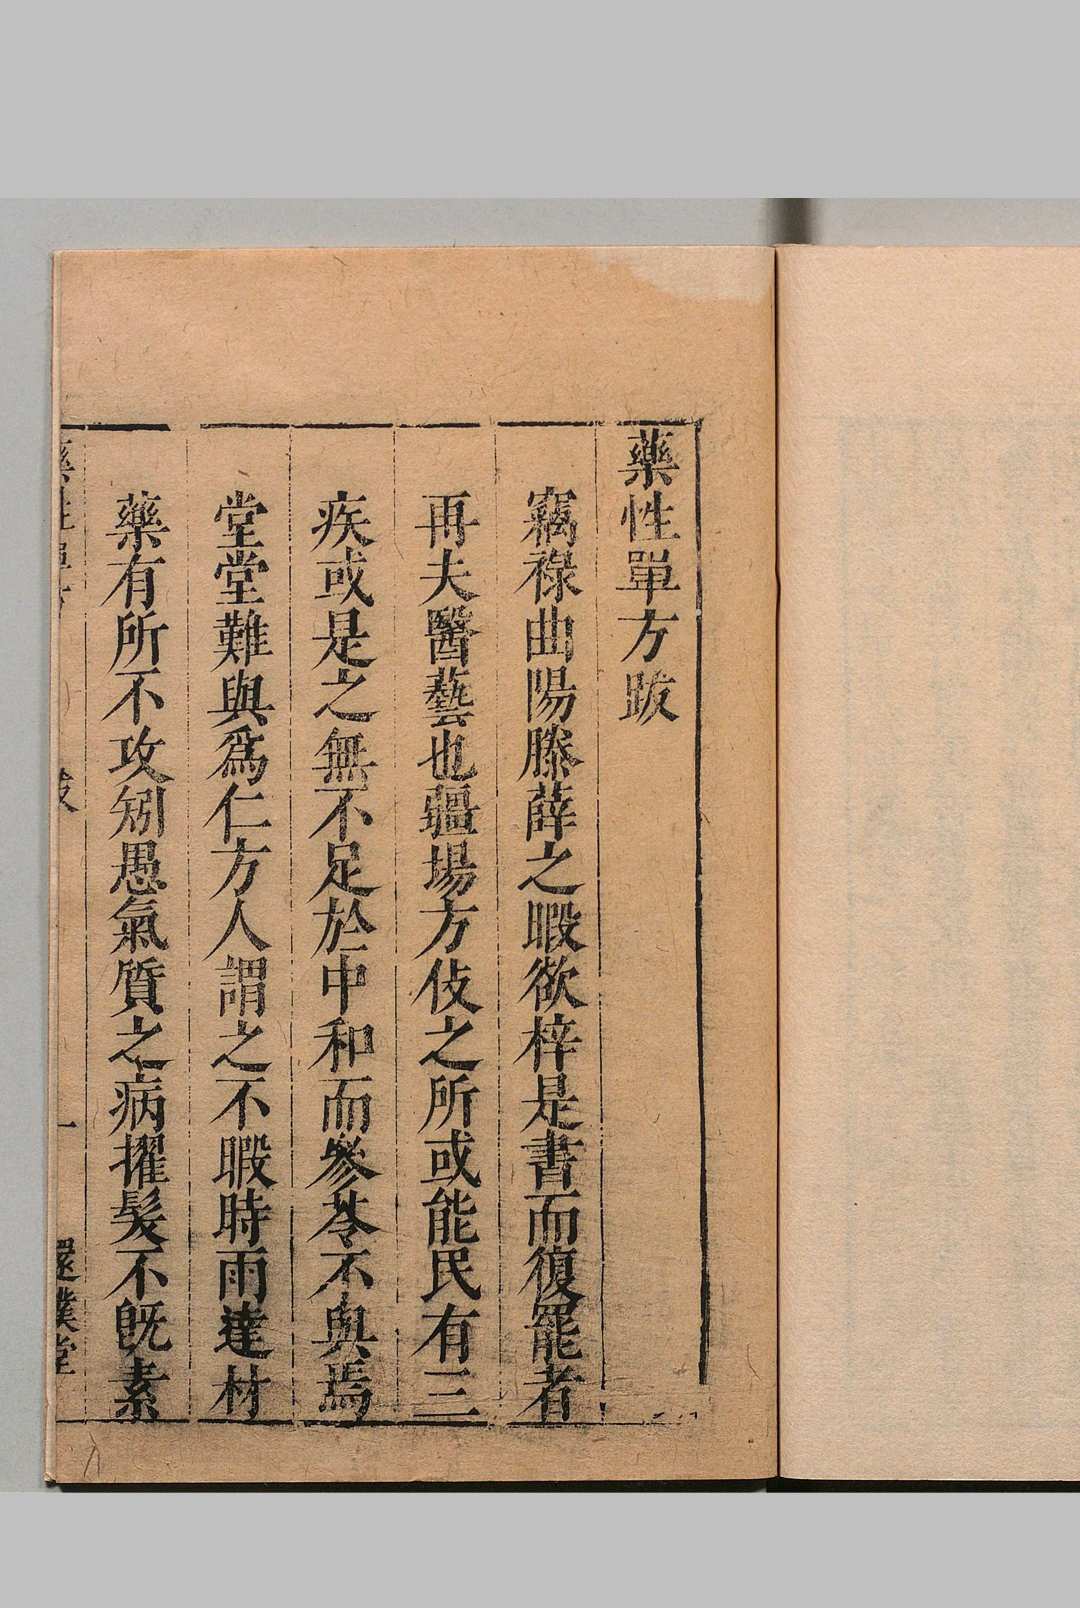 藥性單方跋
竊祿曲陽滕薛之暇欲梓是書而復罷者
再夫醫藝也疆場方伎之所或能民有三
疾或是之無不足於中和而參苓不與焉
堂堂難與爲仁方人謂之不暇時雨達材
藥有所不攻矧愚氣質之病擢髮不旣素